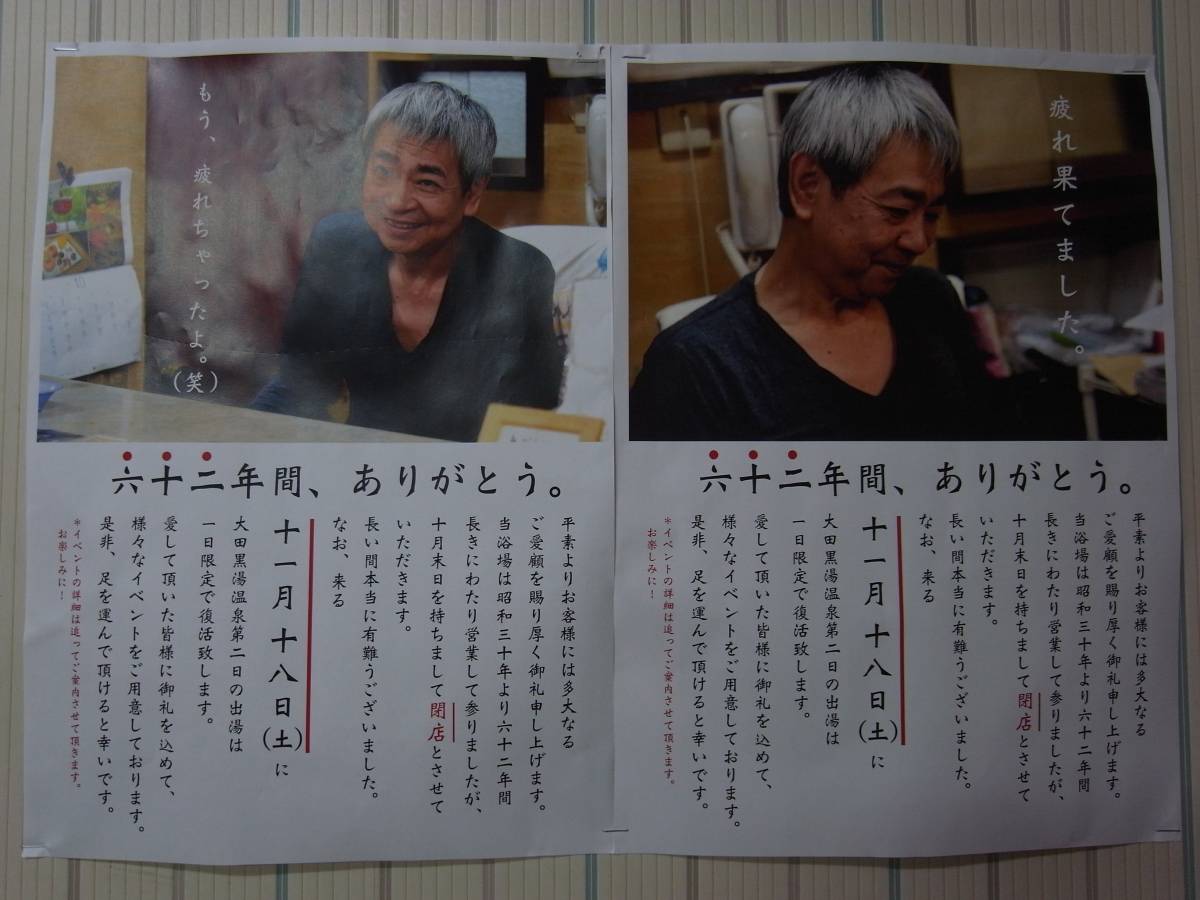 もう、疲れちゃったよ。(笑)
六十二年間、ありがとう。
平素よりお客様には多大なる
ご愛顧を賜り厚く御礼申し上げます。
当浴場は昭和三十年より六十二年間
長きにわたり営業して参りましたが、
十月末日を持ちまして閉店とさせて
いただきます。
長い間本当に有難うございました。
なお、来る
十一月十八日(土)に
大田黒湯温泉第二日の出湯は
一日限定で復活致します。
愛して頂いた皆様に御礼を込めて、
様々なイベントをご用意しております。
是非、足を運んで頂けると幸いです。
*イベントの詳細は追ってご案内させて頂きます。
お楽しみに!
疲れ果てました。
六十二年間、ありがとう。
平素よりお客様には多大なる
ご愛顧を賜り厚く御礼申し上げます。
当浴場は昭和三十年より六十二年間
長きにわたり営業して参りましたが、
十月末日を持ちまして閉店とさせて
いただきます。
長い間本当に有難うございました。
なお、来る
十一月十八日(土)に
大田黒湯温泉第二日の出湯は
一日限定で復活致します。
愛して頂いた皆様に御礼を込めて、
様々なイベントをご用意しております。
是非、足を運んで頂けると幸いです。
*イベントの詳細は追ってご案内させて頂きます。
お楽しみに!